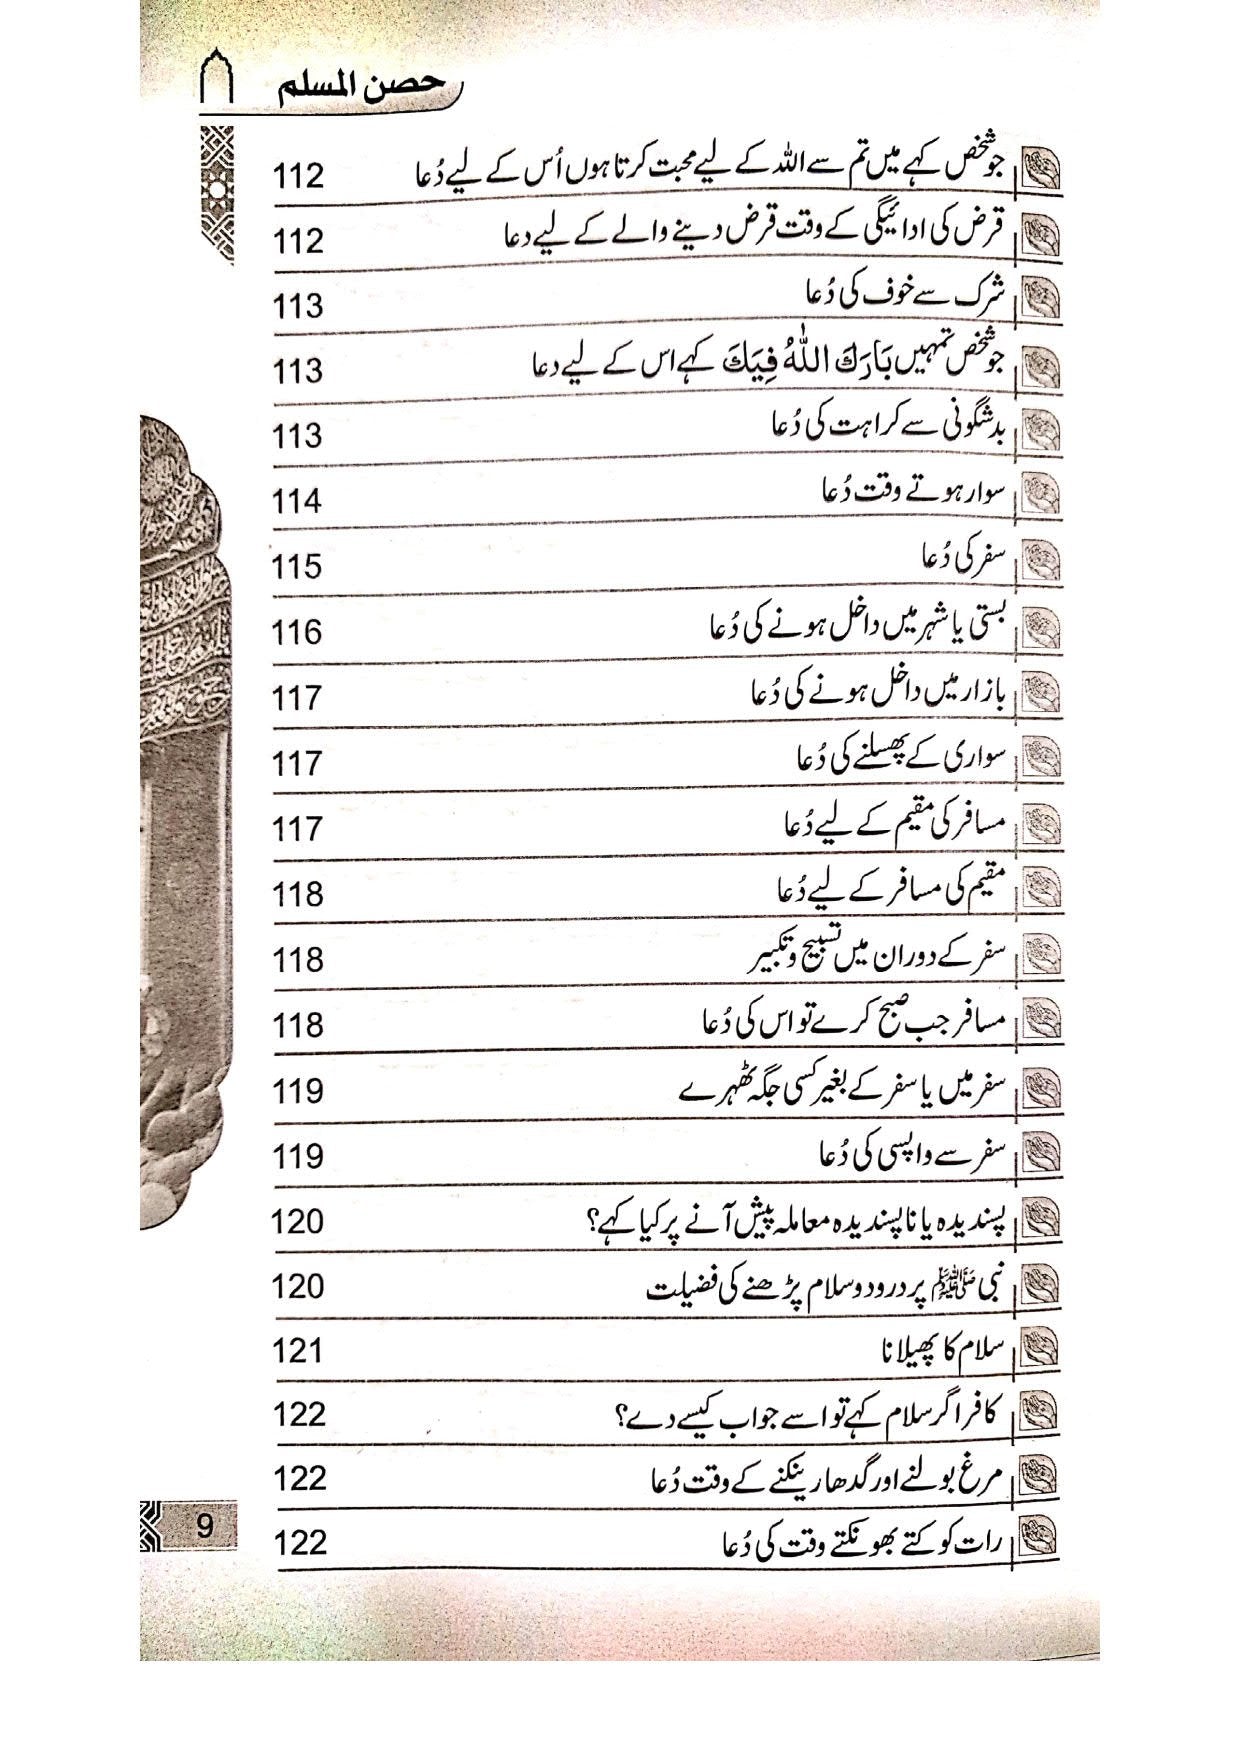 حصن المسلم
جو شخص کہے میں تم سے اللہ کے لیے محبت کرتا ہوں اُس کے لیے دُعا 112
قرض کی ادائیگی کے وقت قرض دینے والے کے لیے دعا 112
شرک سے خوف کی دُعا 113
جو شخص تمہیں بَارَكَ اللّٰهُ فِيَكَ کہے اس کے لیے دعا 113
بدشگونی سے کراہت کی دُعا 113
سوار ہوتے وقت دُعا 114
سفر کی دُعا 115
بستی یا شہر میں داخل ہونے کی دُعا 116
بازار میں داخل ہونے کی دُعا 117
سواری کے پھسلنے کی دُعا 117
مسافر کی مقیم کے لیے دُعا 117
مقیم کی مسافر کے لیے دُعا 118
سفر کے دوران میں تسبیح و تکبیر 118
مسافر جب صبح کرے تو اس کی دُعا 118
سفر میں یا سفر کے بغیر کسی جگہ ٹھہرے 119
سفر سے واپسی کی دُعا 119
پسندیدہ یا ناپسندیدہ معاملہ پیش آنے پر کیا کہے؟ 120
نبی ﷺ پر درود و سلام پڑھنے کی فضیلت 120
سلام کا پھیلانا 121
کافر اگر سلام کہے تو اسے جواب کیسے دے؟ 122
مرغ بولنے اور گدھا رینکنے کے وقت دُعا 122
رات کو کتے بھونکتے وقت کی دُعا 122
9